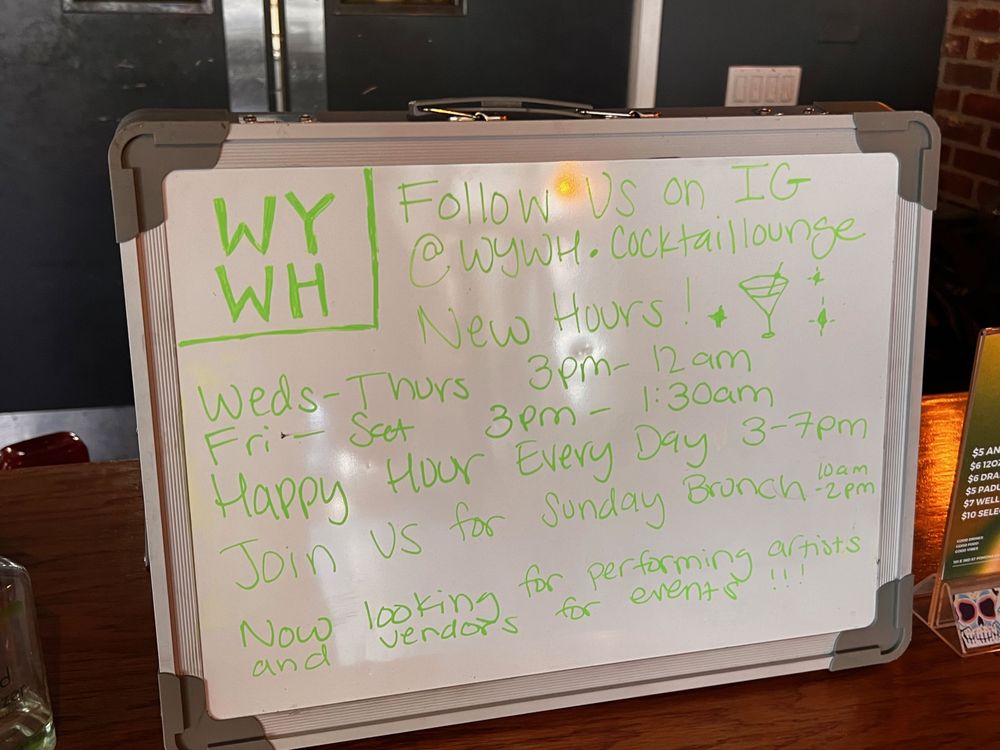 WY
WH
Follow Us on IG
@WYWH.Cocktaillounge
New Hours!
Weds-Thurs 3pm- 12am
Fri - Sat 3pm - 1:30am
Happy Hour Every Day 3-7pm
Join us for Sunday Brunch 10am
-2pm
Now looking for performing artists
and vendors for events!!!
$5 AN
$6 12OZ
$6 DRA
$7 WELL
$10 SELE
GOOD DRINKS
GOOD FOOD
GOOD VIBES